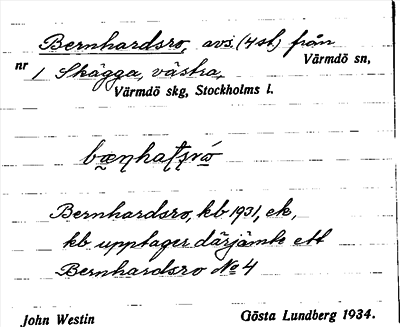 Bernhardsro, avs. (4 st) från
nr 1 Skägga, västra, Värmdö sn,
Värmdö skg, Stockholms l.
Bernhardsro, kb 1931, ek,
kb upptager därjämte ett
Bernhardsro No 4
John Westin Gösta Lundberg 1934.